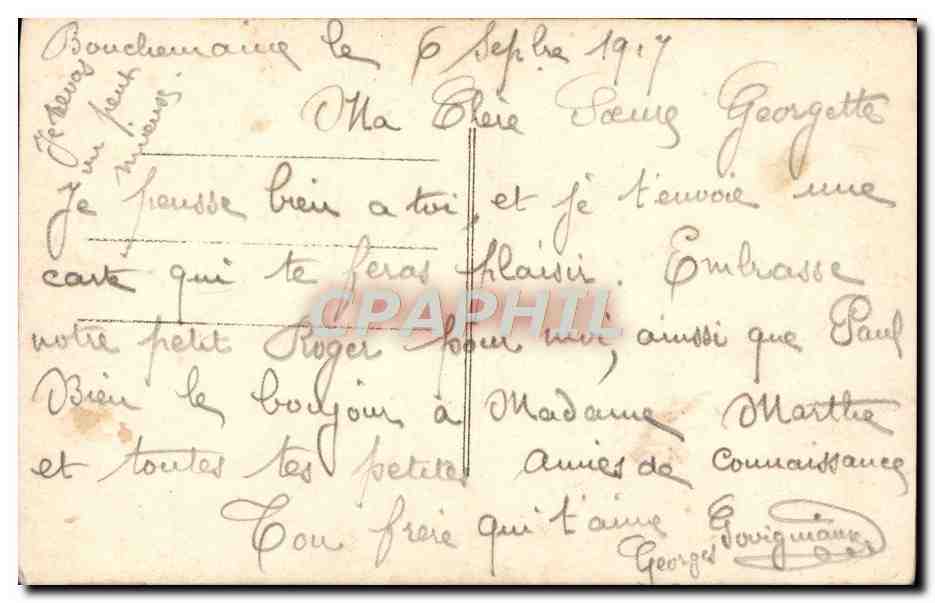 Bouchemaine le 6 Sepbre 1917
Je revas
un peut
mieux
Ma Chère Soeur Georgette
Je pensse bien a toi, et je t'envoie une
carte qui te feras plaisir. Embrasse
notre petit Roger pour moi, ainssi que Paul
Bien le boujour à Madame Marthe
et toutes tes petites amies de connaissance
Ton frère qui t'aime
Georges
CPAPHIL